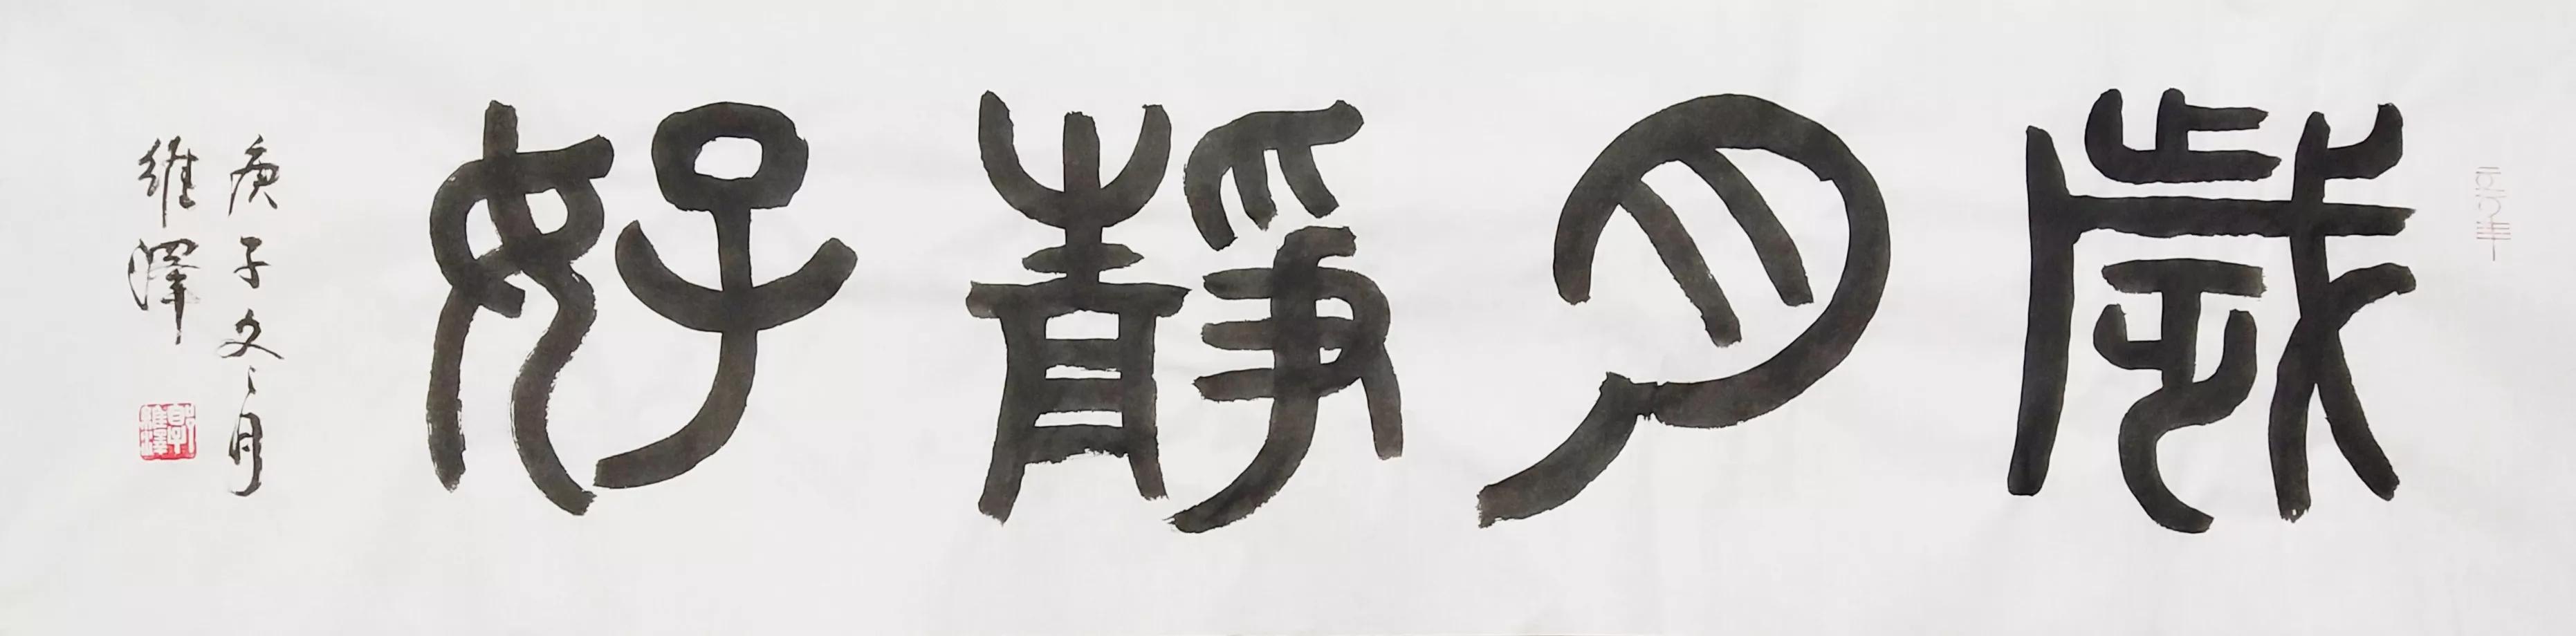 歲月靜好
庚子冬月
維澤
郭維澤